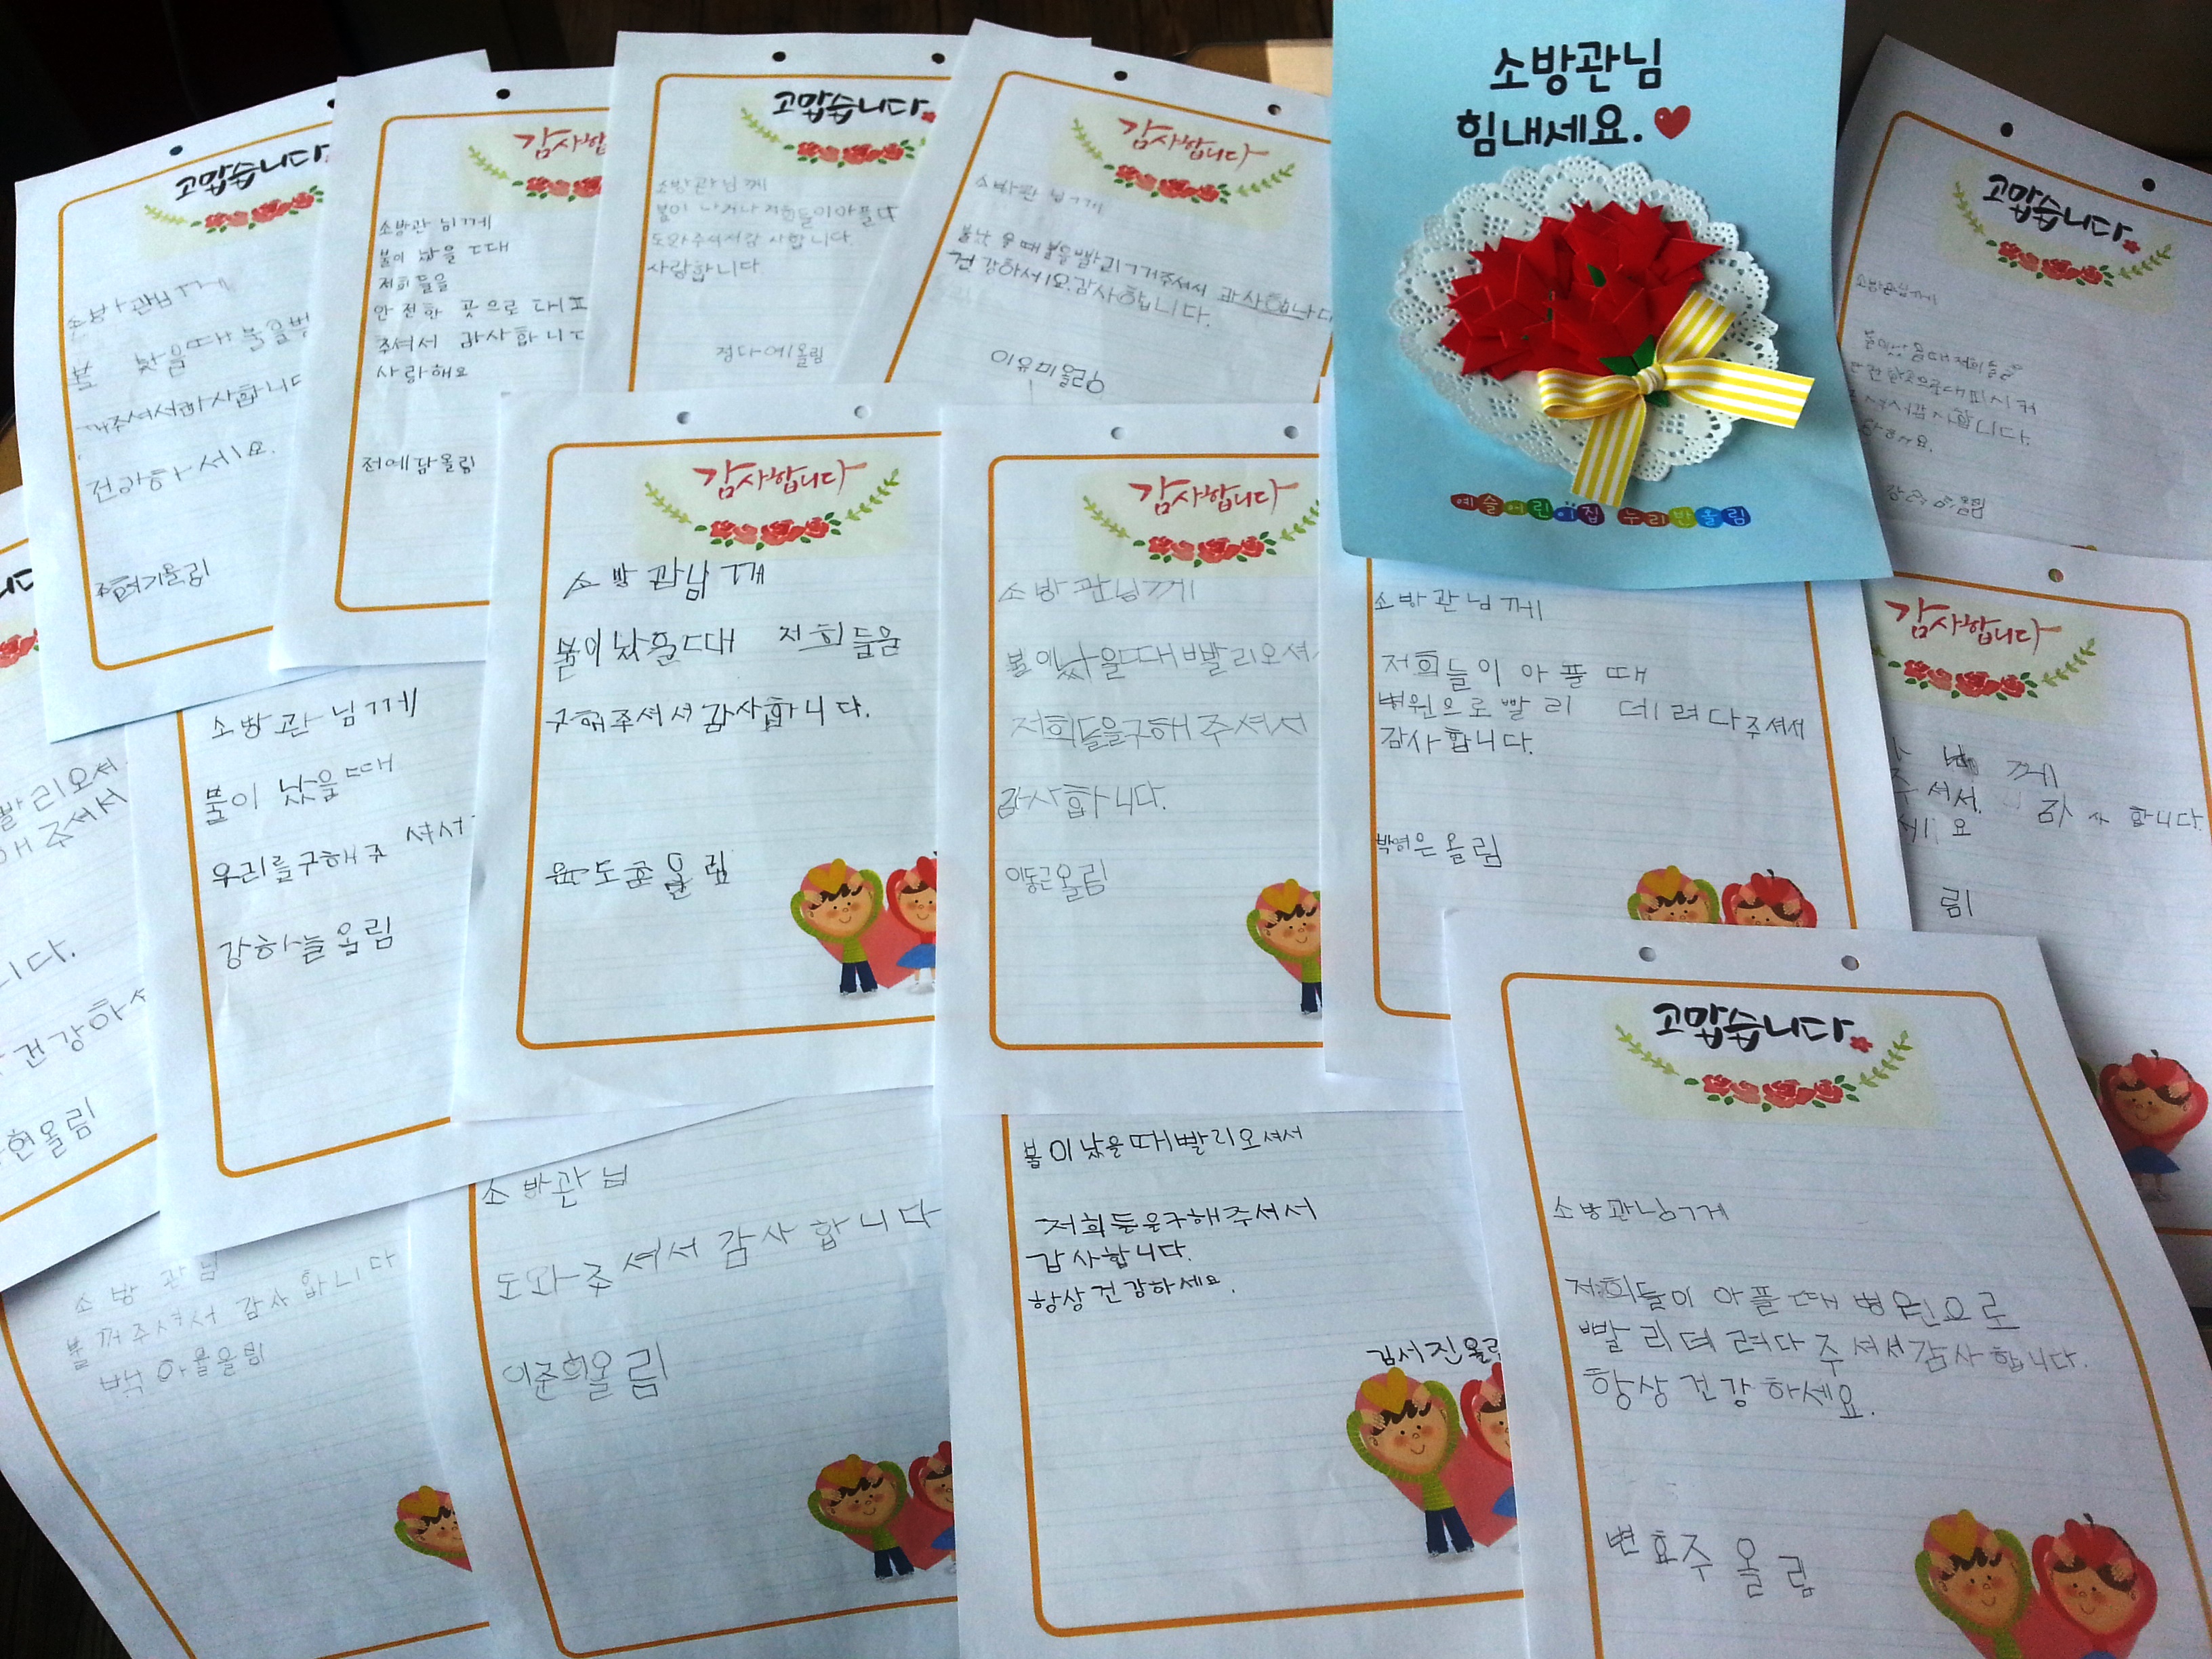 고맙습니다
소방관님께
건강하세요.
감사
소방관님께
불이 났을 때
저희들을
안전한 곳으로 대피
주셔서 감사합니다
사랑해요
전예담올림
고맙습니다
소방관님께
불이 나거나 저희들이아플때
도와주셔서감사합니다.
사랑합니다.
정다예올림
감사합니다
소방관님께
불났을때불을빨리ㄲ거주셔서 감사합니다
건강하세요.감사합니다.
이유미올림
소방관님
힘내세요.
예슬어린이집 누리반올림
고맙습니다
소방관님께
불이났을때저희들을
대피시켜
셔서감사합니다.
올림
빨리오셔
해주셔서
니다.
건강하
현올림
소방관님께
불이 났을때
우리를구해주셔서
강하늘올림
감사합니다
소방관님께
불이났을때 저희들을
구해주셔서감사합니다.
윤도훈올림
감사합니다
소방관님께
불이났을때빨리오셔
저희들을구해주셔서
감사합니다.
이동근올림
소방관님께
저희들이아플때
병원으로빨리 데려다주셔서
감사합니다.
박혜은올림
감사합니다
님께
주셔서. 감사합니다.
세요
림
소방관님
불꺼주셔서감사합니다
올림
소방관님
도와주셔서감사합니다
이준희올림
불이났을때빨리오셔서
저희들을구해주셔서
감사합니다.
항상건강하세요.
김서진올림
고맙습니다
소방관님께
저희들이아플때병원으로
빨리뎌려다주셔서감사합니다.
항상건강하세요.
변효주올림